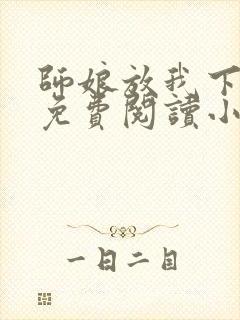 師娘放我下
免費閱讀小
一目二目